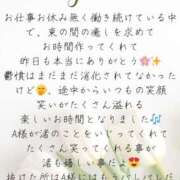 お仕事お休み無く働き続けている中
で、束の間の癒しを求めて
お時間作ってくれて
昨日も本当にありがとう🌸✨
鬱憤はまだまだ消化されてなかった
けど🙂、途中からいつもの笑顔
笑いがたくさん溢れる
楽しいお時間となりました🎶
A様が渚のことをいじってくれて
たくさん笑ってくれる事が
渚も嬉しい事だよ😍
抜けた所はA様にはもうバレバレだ